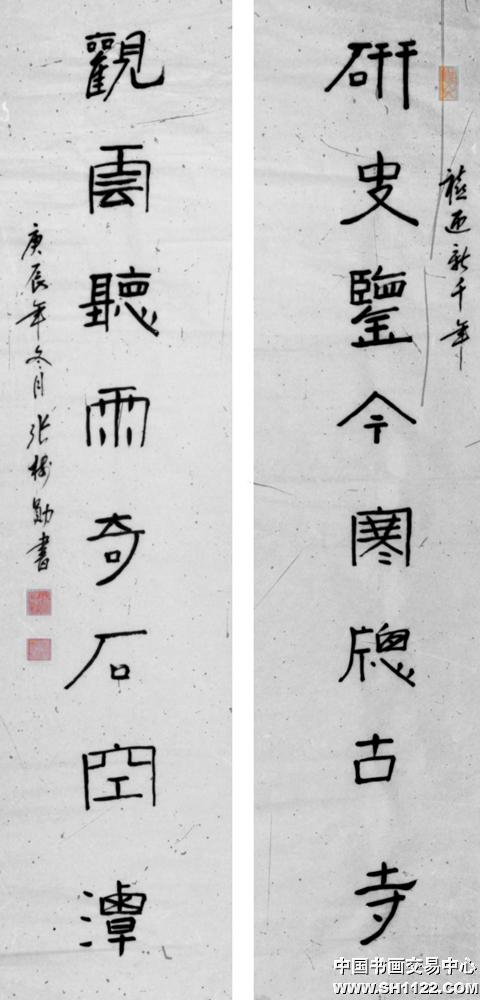 禧迎新千年
研史鑒今寒牕古寺
觀雲聽雨奇石空潭
庚辰年冬月张樹勛書
中国书画交易中心
www.SH1122.com